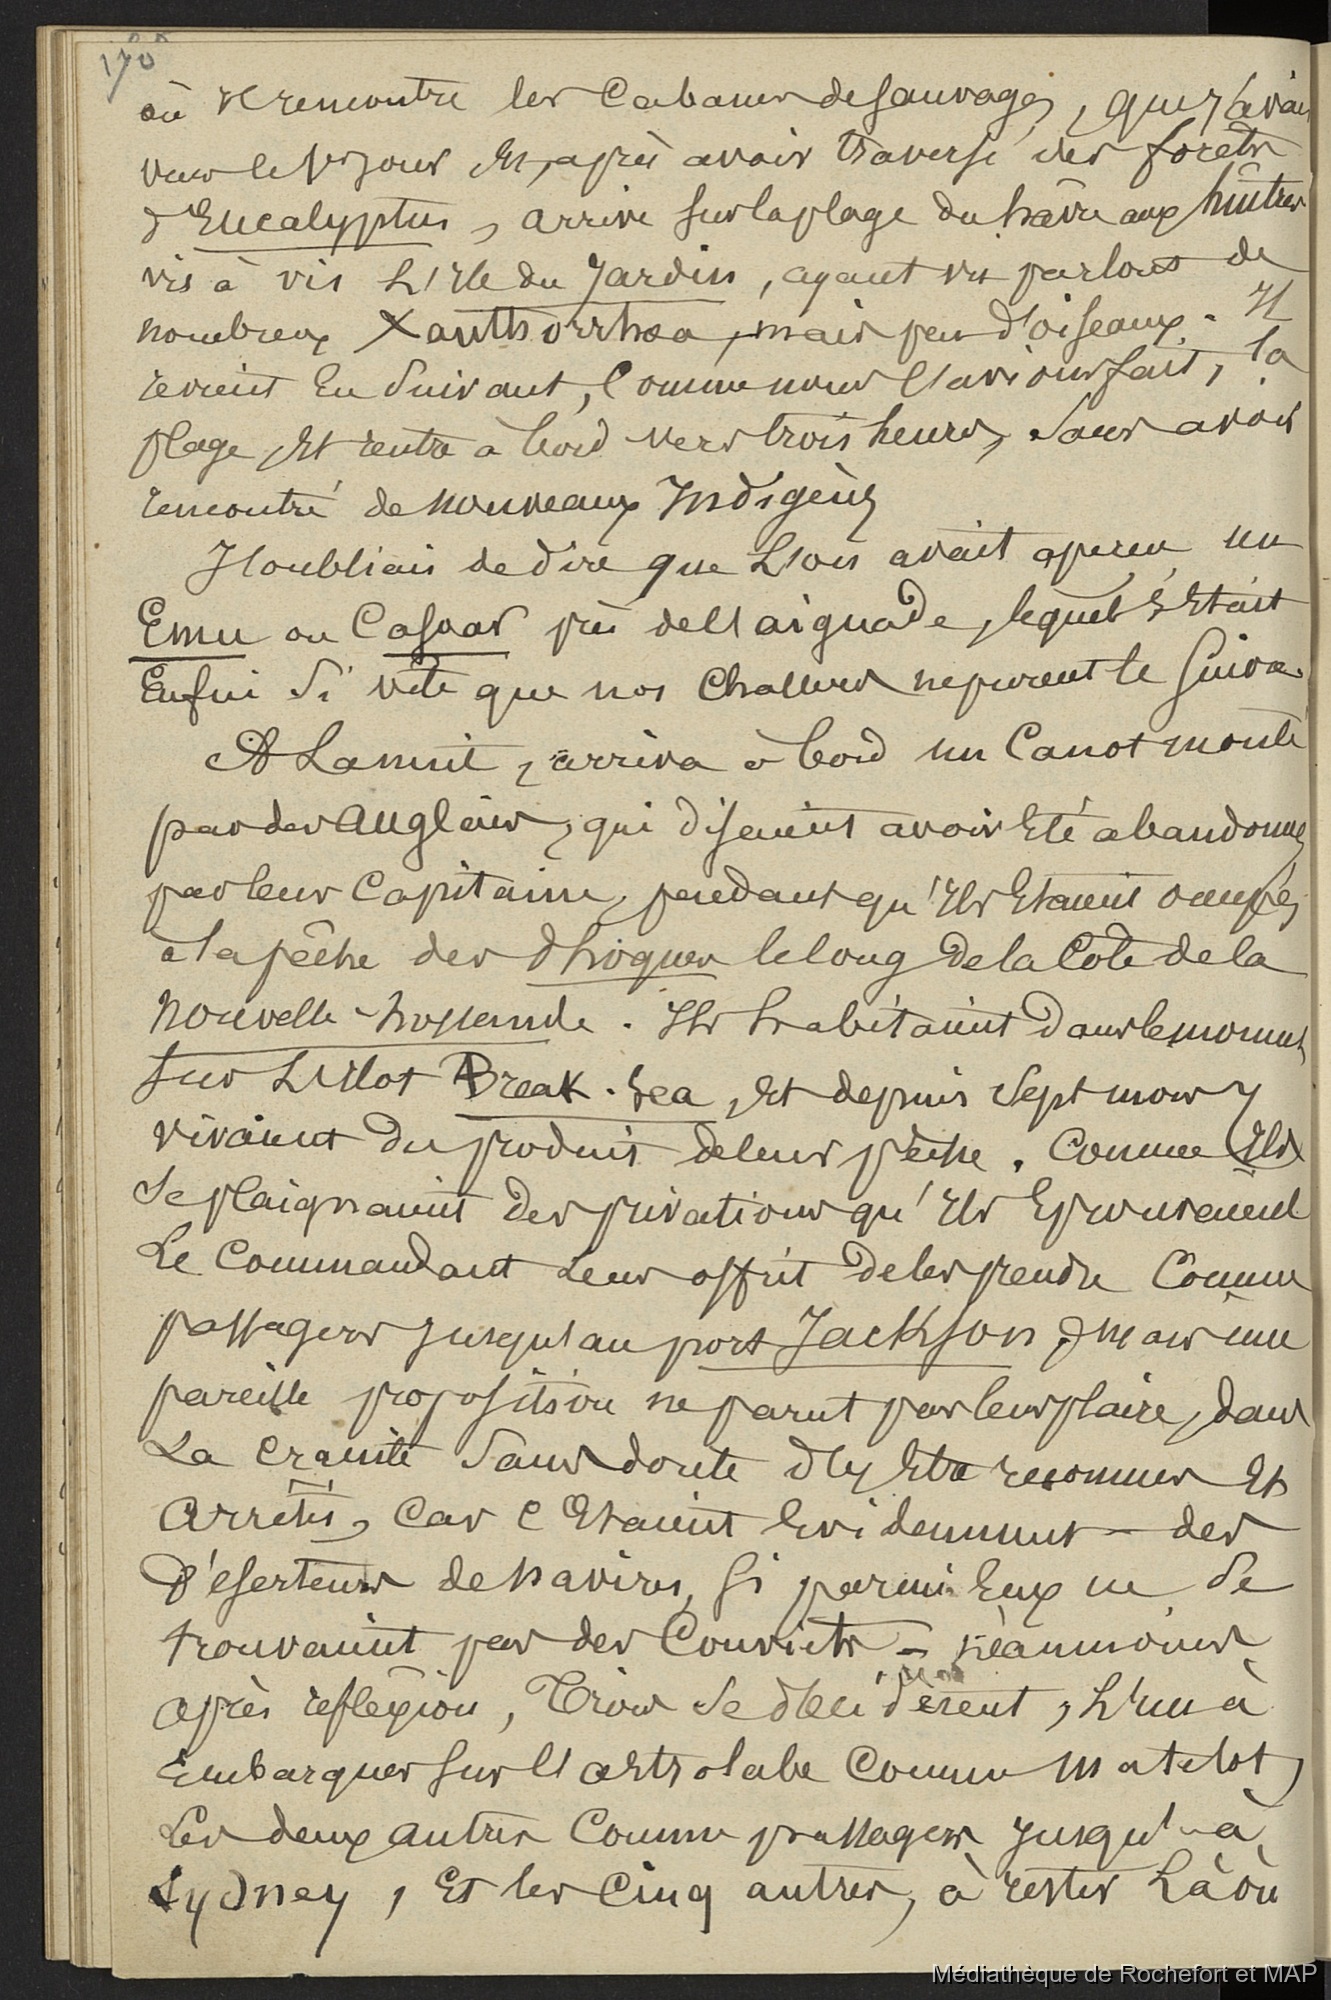 170
où il rencontre les Cabanes de Sauvages, que j'avais
vues le 1er jour Et, après avoir traversé des forêts
d'Eucalyptus, arrive sur la plage du hâvre aux huîtres
vis à vis L'Ile du Jardin, ayant vu partout de
nombreux Xanthorrhœa, mais peu d'oiseaux. Il
revient En Suivant, Comme nous l'avions fait, la
plage, Et rentre à bord vers trois heures, Sans avoir
rencontré de nouveaux Indigènes
J'oubliais de dire que L'on avait aperçu un
Emu ou Casoar près de l'aiguade, lequel s'Etait
Enfui Si vite que nos Chasseurs ne purent le Suivre.
A La nuit, arriva à bord un Canot monté
par des Anglais, qui disaient avoir Eté abandonnés
par leur Capitaine, pendant qu'Ils Etaient occupés
à la pêche des Phoques le long de la Côte de la
Nouvelle-hollande. Ils habitaient dans le moment
Sur L'Ilot Break-Sea, Et depuis Sept mois y
vivaient du produit de leur pêche. Comme Ils
Se plaignaient des privations qu'Ils Eprouvaient
Le Commandant Leur offrit de les prendre Comme
passagers jusqu'au port Jackson, mais une
pareille proposition ne parut pas leur plaire, dans
La crainte Sans doute d'y Etre reconnus Et
Arrêtés, Car C'Etaient Evidemment des
Déserteurs de navires, Si parmi Eux ne Se
trouvaient pas des Convicts - néanmoins
Après réflexion, Trois Se décidèrent, L'un à
Embarquer Sur l'Astrolabe Comme Matelot,
Les deux Autres Comme passagers jusqu'à
Sydney, Et les Cinq autres, à rester Là où
Médiathèque de Rochefort et MAP